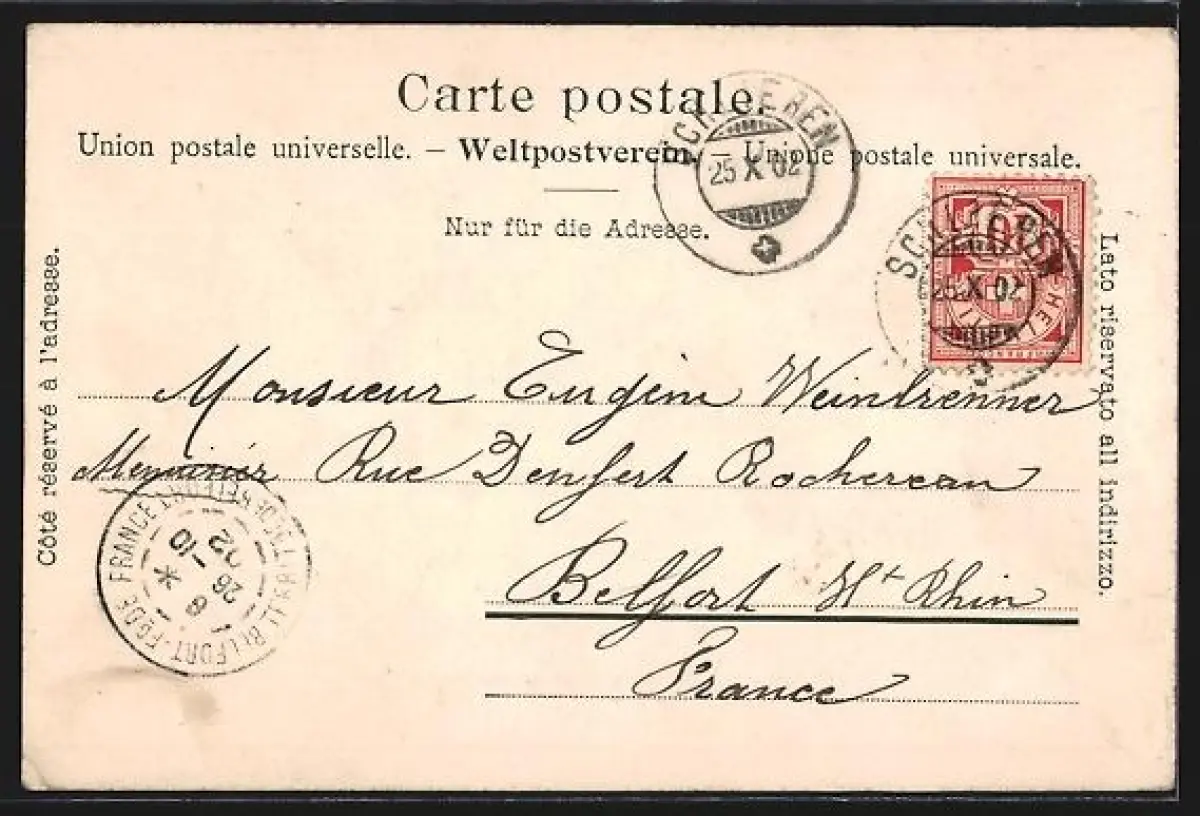 Carte postale.
Union postale universelle. – Weltpostverein. – Unione postale universale.
Nur für die Adresse.
Côté réservé à l'adresse.
Lato riservato all indirizzo.
SCHLIEREN
25 X 02
10
HELVETIA
SCHLIEREN
25 X 02
Monsieur Eugène Weinbrenner
Menuisier Rue Denfert Rochereau
Belfort Ht Rhin
France
BELFORT
26 -10
02